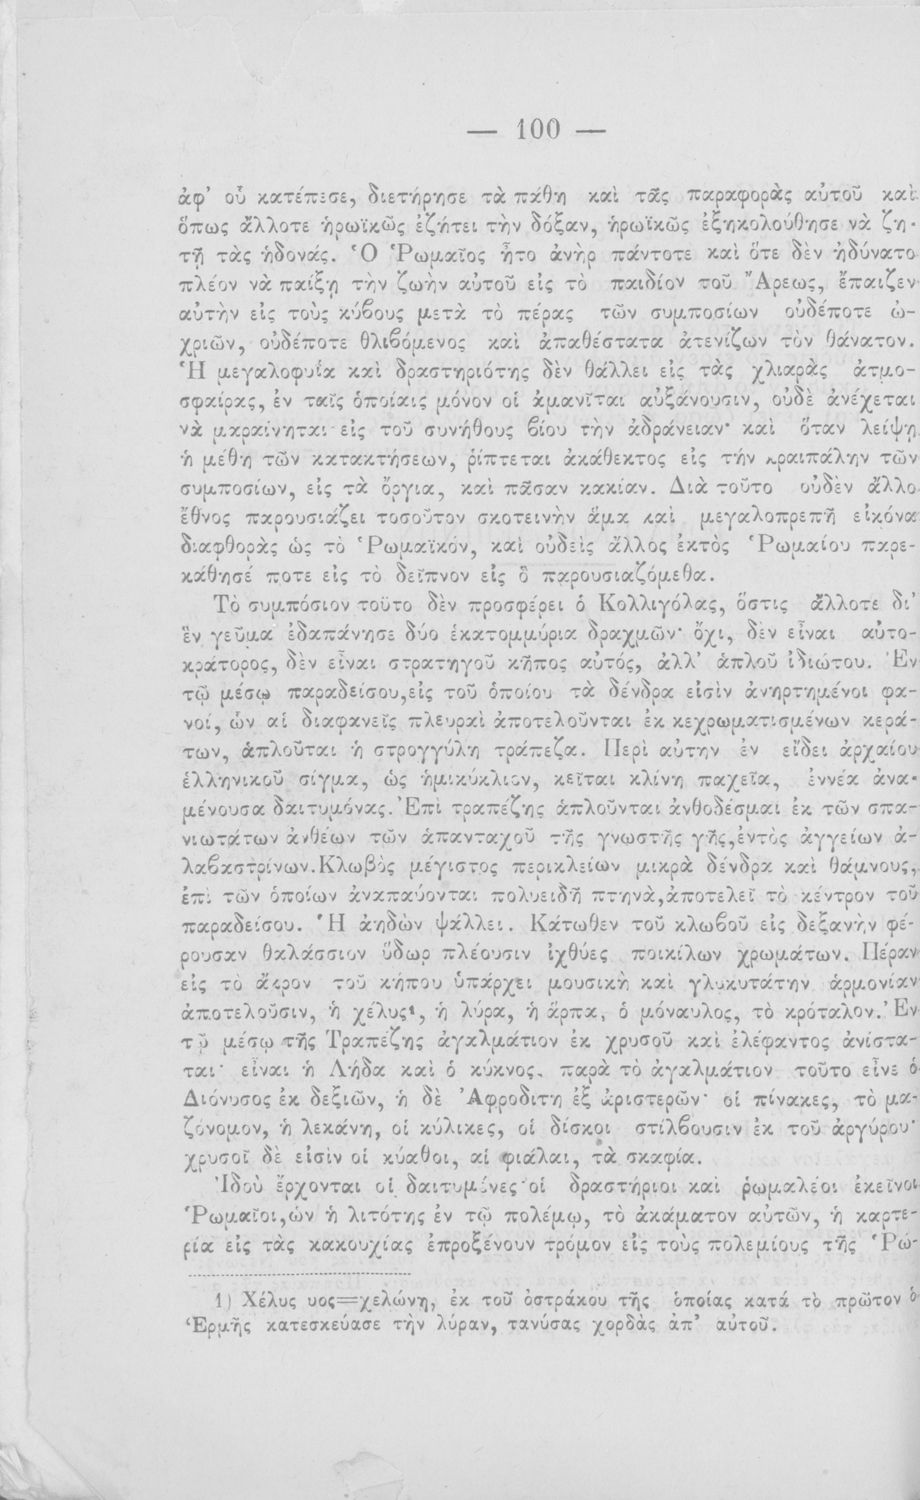 — 100 —
ἀφ' οὗ κατέπεσε, διετήρησε τὰ πάθη καὶ τᾶς παραφορὰς αὐτοῦ καὶ
ὅπως ἄλλοτε ἡρωϊκῶς ἐζήτει τὴν δόξαν, ἡρωϊκῶς ἐξηκολούθησε νὰ ζη-
τῇ τὰς ἡδονάς. Ὁ Ῥωμαῖος ἦτο ἀνὴρ πάντοτε καὶ ὅτε δὲν ἠδύνατο
πλέον νὰ παίξῃ τὴν ζωὴν αὐτοῦ εἰς τὸ παιδίον τοῦ Ἄρεως, ἔπαιζεν
αὐτὴν εἰς τοὺς κύβους μετὰ τὸ πέρας τῶν συμποσίων οὐδέποτε ὠ-
χριῶν, οὐδέποτε θλιβόμενος καὶ ἀπαθέστατα ἀτενίζων τὸν θάνατον.
Ἡ μεγαλοφυΐα καὶ δραστηριότης δὲν θάλλει εἰς τὰς χλιαρὰς ἀτμο-
σφαίρας, ἐν ταῖς ὁποίαις μόνον οἱ ἀμανῖται αὐξάνουσιν, οὐδὲ ἀνέχεται
νὰ μαραίνηται εἰς τοῦ συνήθους βίου τὴν ἀδράνειαν· καὶ ὅταν λείψῃ
ἡ μέθη τῶν κατακτήσεων, ῥίπτεται ἀκάθεκτος εἰς τήν κραιπάλην τῶν
συμποσίων, εἰς τὰ ὄργια, καὶ πᾶσαν κακίαν. Διὰ τοῦτο οὐδὲν ἄλλο
ἔθνος παρουσιάζει τοσοῦτον σκοτεινὴν ἅμα καὶ μεγαλοπρεπῆ εἰκόνα
διαφθορᾶς ὡς τὸ Ῥωμαϊκόν, καὶ οὐδεὶς ἄλλος ἐκτὸς Ῥωμαίου παρε-
κάθησέ ποτε εἰς τὸ δεῖπνον εἰς ὃ παρουσιαζόμεθα.
Τὸ συμπόσιον τοῦτο δὲν προσφέρει ὁ Κολλιγόλας, ὅστις ἄλλοτε δι'
ἓν γεῦμα ἐδαπάνησε δύο ἑκατομμύρια δραχμῶν· ὄχι, δὲν εἶναι αὐτο-
κράτορος, δὲν εἶναι στρατηγοῦ κῆπος αὐτός, ἀλλ' ἁπλοῦ ἰδιώτου. Ἐν
τῷ μέσῳ παραδείσου,εἰς τοῦ ὁποίου τὰ δένδρα εἰσὶν ἀνηρτημένοι φα-
νοί, ὧν αἱ διαφανεῖς πλευραὶ ἀποτελοῦνται ἐκ κεχρωματισμένων κερά-
των, ἁπλοῦται ἡ στρογγύλη τράπεζα. Περὶ αὐτην ἐν εἴδει ἀρχαίου
ἑλληνικοῦ σίγμα, ὡς ἡμικύκλιον, κεῖται κλίνη παχεῖα, ἐννέα ἀνα-
μένουσα δαιτυμόνας. Ἐπὶ τραπέζης ἁπλοῦνται ἀνθοδέσμαι ἐκ τῶν σπα-
νιωτάτων ἀνθέων τῶν ἁπανταχοῦ τῆς γνωστῆς γῆς,ἐντὸς ἀγγείων ἀ-
λαβαστρίνων.Κλωβὸς μέγιστος περικλείων μικρὰ δένδρα καὶ θάμνους,
ἐπὶ τῶν ὁποίων ἀναπαύονται πολυειδῆ πτηνὰ,ἀποτελεῖ τὸ κέντρον τοῦ
παραδείσου. Ἡ ἀηδὼν ψάλλει. Κάτωθεν τοῦ κλωβοῦ εἰς δεξανὴν φέ-
ρουσαν θαλάσσιον ὕδωρ πλέουσιν ἰχθύες ποικίλων χρωμάτων. Πέραν
εἰς τὸ ἄκρον τοῦ κήπου ὑπάρχει μουσικὴ καὶ γλυκυτάτην ἁρμονίαν
ἀποτελοῦσιν, ἡ χέλυς¹, ἡ λύρα, ἡ ἅρπα, ὁ μόναυλος, τὸ κρόταλον. Ἐν
τῷ μέσῳ τῆς Τραπέζης ἀγαλμάτιον ἐκ χρυσοῦ καὶ ἐλέφαντος ἀνίστα-
ται· εἶναι ἡ Λήδα καὶ ὁ κύκνος. παρὰ τὸ ἀγαλμάτιον τοῦτο εἶνε ὁ
Διόνυσος ἐκ δεξιῶν, ἡ δὲ Ἀφροδιτη ἐξ ἀριστερῶν· οἱ πίνακες, τὸ μα-
ζόνομον, ἡ λεκάνη, οἱ κύλικες, οἱ δίσκοι στίλβουσιν ἐκ τοῦ ἀργύρου·
χρυσοῖ δὲ εἰσὶν οἱ κύαθοι, αἱ φιάλαι, τὰ σκαφία.
Ἰδοὺ ἔρχονται οἱ δαιτυμόνες· οἱ δραστήριοι καὶ ῥωμαλέοι ἐκεῖνοι
Ῥωμαῖοι,ὧν ἡ λιτότης ἐν τῷ πολέμῳ, τὸ ἀκάματον αὐτῶν, ἡ καρτε-
ρία εἰς τὰς κακουχίας ἐπροξένουν τρόμον εἰς τοὺς πολεμίους τῆς Ῥώ-
1) Χέλυς υος=χελώνη, ἐκ τοῦ ὀστράκου τῆς ὁποίας κατά τὸ πρῶτον ὁ
Ἑρμῆς κατεσκεύασε τὴν λύραν, τανύσας χορδὰς ἀπ' αὐτοῦ.